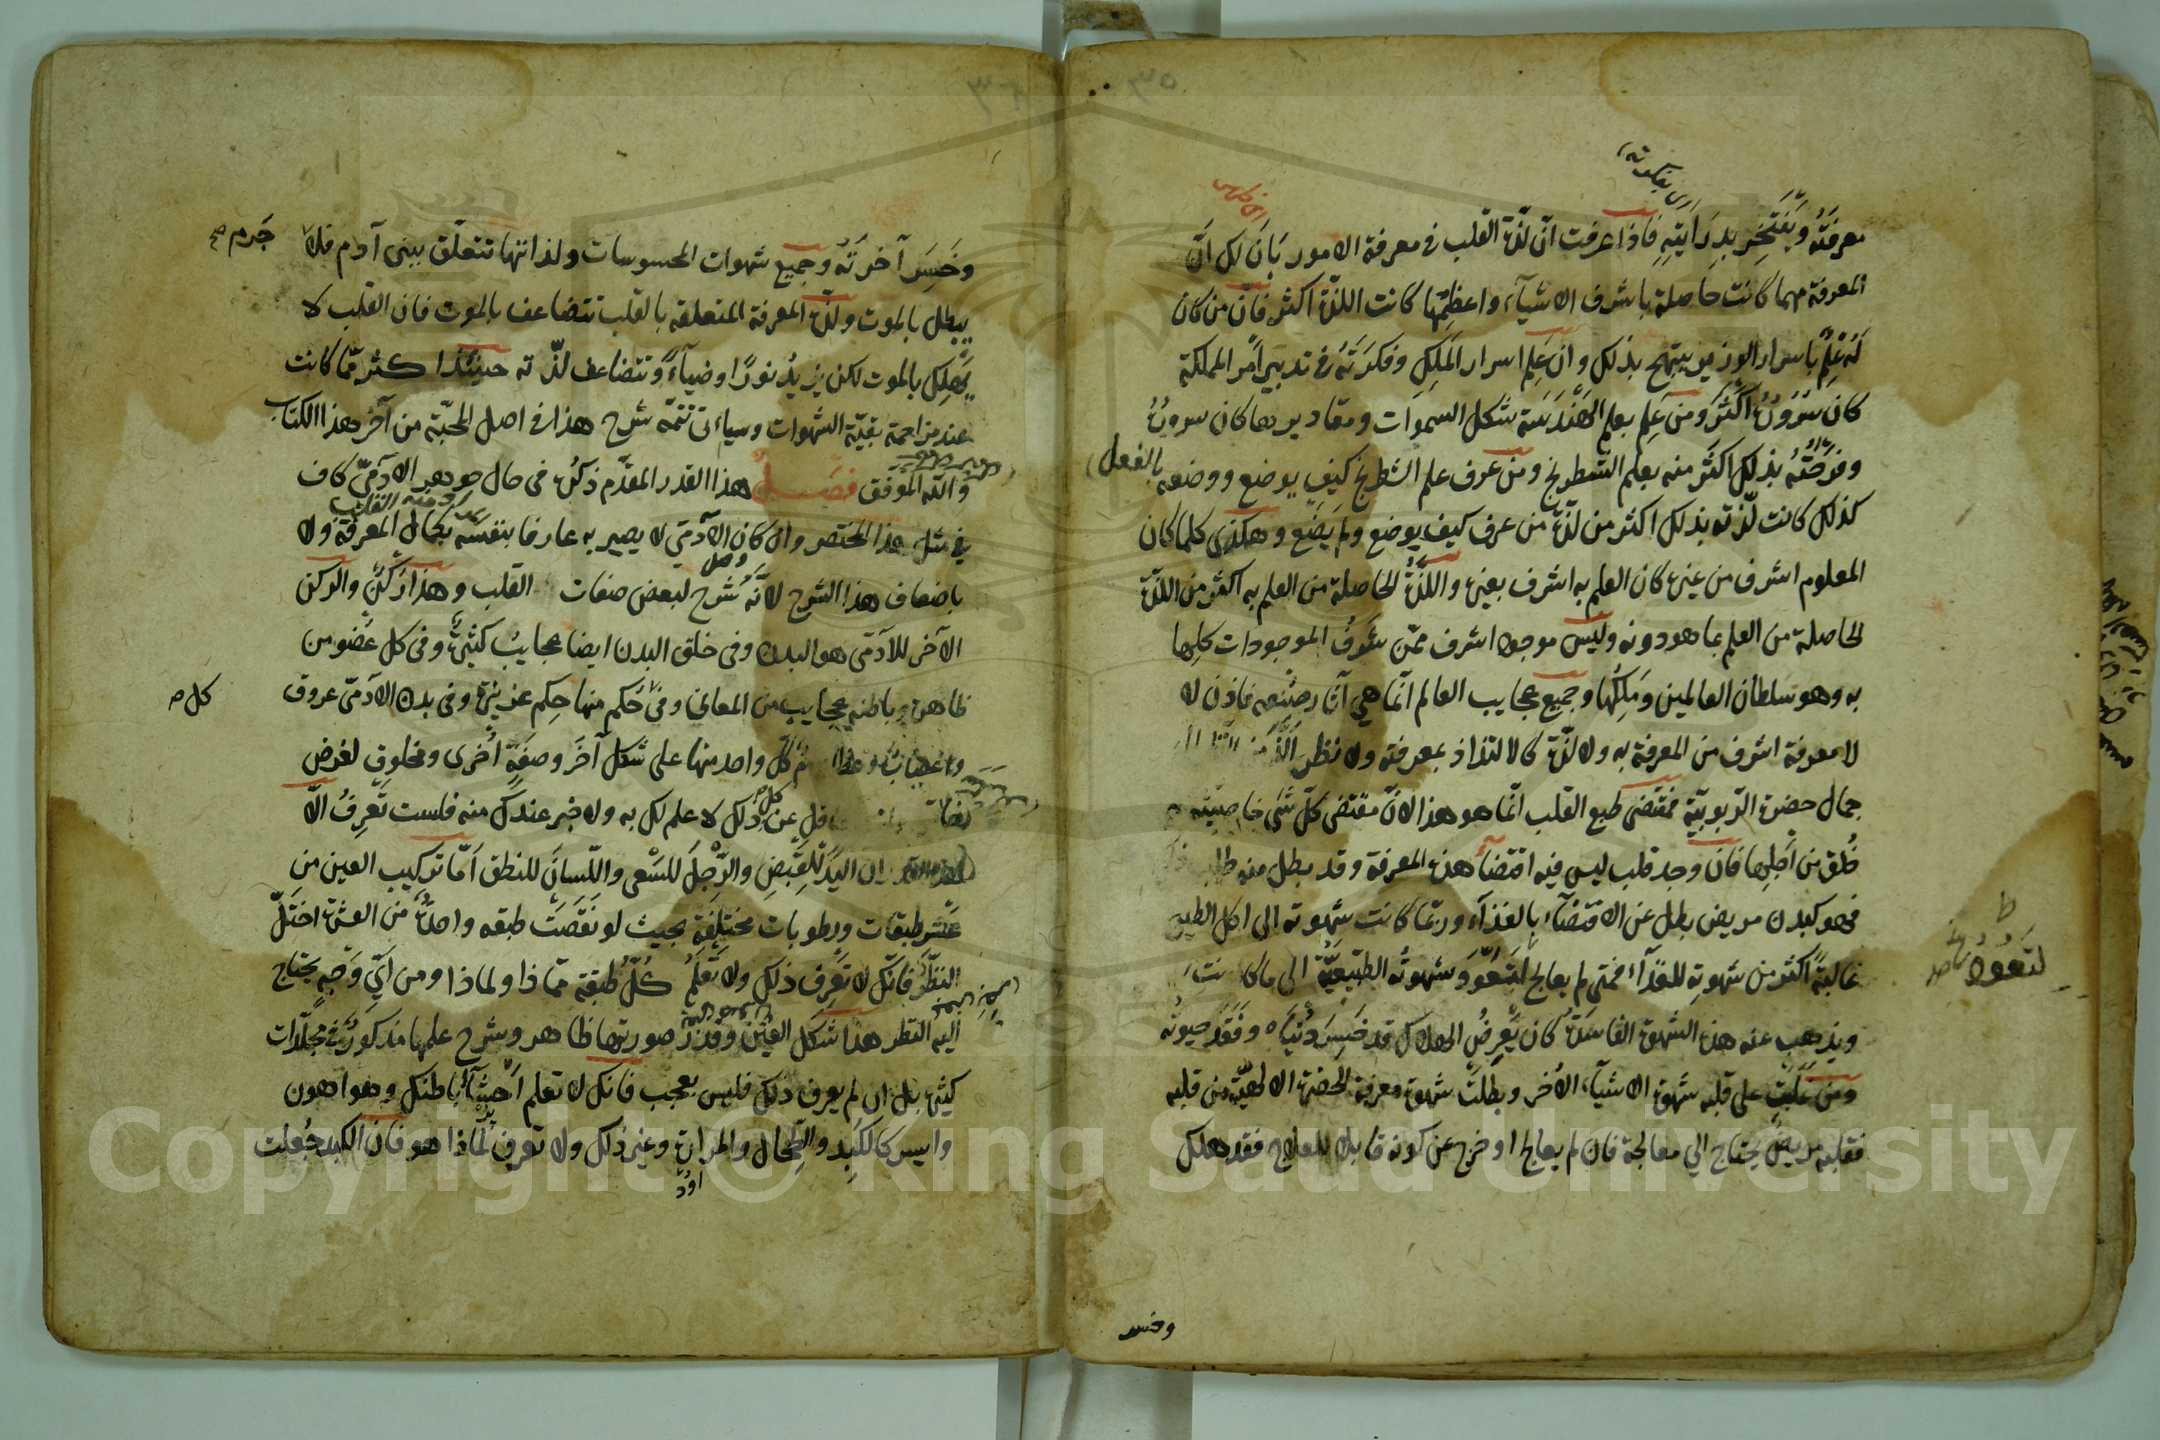 معرفتُه ويَفْتَخِر بدِرَايَتِهِ فاذا عرفت انّ لذّة القلب فى معرفة الامور بَانَ لك انّ
المعرفة مهما كانت حاصلة باشرف الاشيآء واعظمِها كانت اللذّة اكثر فانّ من كان
لَهُ عِلْمٌ باسرار الوزير يبتهج بذلك وان عَلِم اسرار المَلِكِ وفكرَتَهُ فى تدبير امر المملكة
كان سُرُورُه اكْثَرَ ومن عَلِم بعلم الهَنْدَسَة شكل السموات ومقاديرها كان سروره
وفَرْحَتُهُ بذلك اكثَرَ منه بعلم الشطرنج ومن عرف علم الشطرنج كيف يوضع ووضعه بالفعل
كذلك كانت لذّته بذلك اكثر من لذّة من عرف كيف يوضع ولم يَضَع وهكذى كلما كان
المعلوم اشرف من غيره كان العلم به اشرف بغيره واللذّةُ الحاصلة من العلم به اكثر من اللذّة
الحاصلة من العلم بما هو دونه وليس موجود اشرف ممّن شَرَفُ الموجودات كلِها
به وهو سلطان العالمين ومَلِكُها وجميع عجايب العالم انّما هى آثار صنعه فاذن لا
لا معرفة اشرف من المعرفة به ولا لذّة كالالتذاذ بمعرفته ولا نظر الَذُّ من
جمال حضرة الرّبوبيّة فمقتضى طبع القلب انّما هو هذا لانّ مقتضى كلّ شئ خاصيّته
خُلق من اَجلِها فان وجد قلب ليس فيه اقتضآء هذه المعرفة وقد بطل منه
فهو كبدن مريض بطل عن الاقتضآء بالغذآء وربّما كانت شهوته الى اكل الطين
غالبة اكثر من شهوته للغذآء فمتى لم يعالج لتعود شهوتُه الطبيعيّة الى ما كانت
ويذهب عنه هذه الشهوة الفاسدة كان يَعرِضُ الهلاك قد خَسِرَ دُنيَاه وفَقَدَ حيوته
ومن غَلَبَت على قلبه شهوة الاشيآء الأُخر وبطلت شهوة معرفة الحضرة الالهيّة من قلبه
فقلبه مريضٌ يحتاج الي معالجة فان لم يعالج او خرج عن كونه قابلا للعلاج فقد هلك
لتعود
وخسر
وخَسِرَ آخرَتَه وجميع شهوات المحسوسات ولذاتها تتعلّق ببنى آدم فلا جَرم صح
يبطل بالموت ولذّة المعرفة المتعلقة بالقلب تتضاعف بالموت فان القلب لا
يَهلِك بالموت لكن يزيدُ نورًا وضيآءً وتتضاعف لذّته حينئذ اكثر مّما كانت
عند مزاحمة بقيّة الشهوات وسيأتى تتمّه شرح هذا فى اصل المحبّة من آخر هذا الكتاب
والله الموَفّق فصـــل هذا القدر المقدَّم ذكرُه فى حال جوهر الآدَمىّ كاف
فى مثل هذا المختصر وان كان الآدمىّ لا يصير به عارفا بنفسه بكمال المعرفة ولا
باضعاف هذا الشرح لانّه شُرح لبعض صفات القلب وهذا رُكنٌ والركن
الآخر للآدَمّى هو البدن وفى خلق البدن ايضا عجايبُ كثيرةٌ وفى كل عُضو من
ظاهره وباطنه عجايب من المعانى وفى حُكم منها حِكم عزيزة وفى بدن الآدَمىّ عروق كل ص
واعصاب وعظام كُلّ واحد منها على شكل آخَر وصفَة أُخرى ومخلوق لغرض
غافل عن ذلك لا علم لك به ولا خبر عندك منه فلست تَعرِفُ الّا
ان اليَدَ لِلقَبضِ والرِّجلَ للسَّعى واللّسانَ للنطق اَمّا تركيب العين من
عَشر طبقات ورطوبات مختلِفَة بحيث لو نَقَصَت طبقه واحدَة من العشرة اختَلّ
النظَرُ فانّك لا تَعَرِف ذلك ولا تَعْلَم كُلّ طبقة مّماذا ولماذا ومن اَىّ وَجه يحتاج
اليه النظر هذا شكل العَيْن وقَدْرُ صورتها ظاهر وشرح علمها مَذكورةٌ فى مجلّدات
كثيرة بل ان لم يعرف ذلك فليس بعجب فانك لا تعلم اَحْشَآءُ باطنك وهو اهون
وايسر كالكَبِد والطِّحال والمرارة وغير ذلك ولا تعرف لماذا هو فان الكبد جُعلت
Copyright © King Saud University